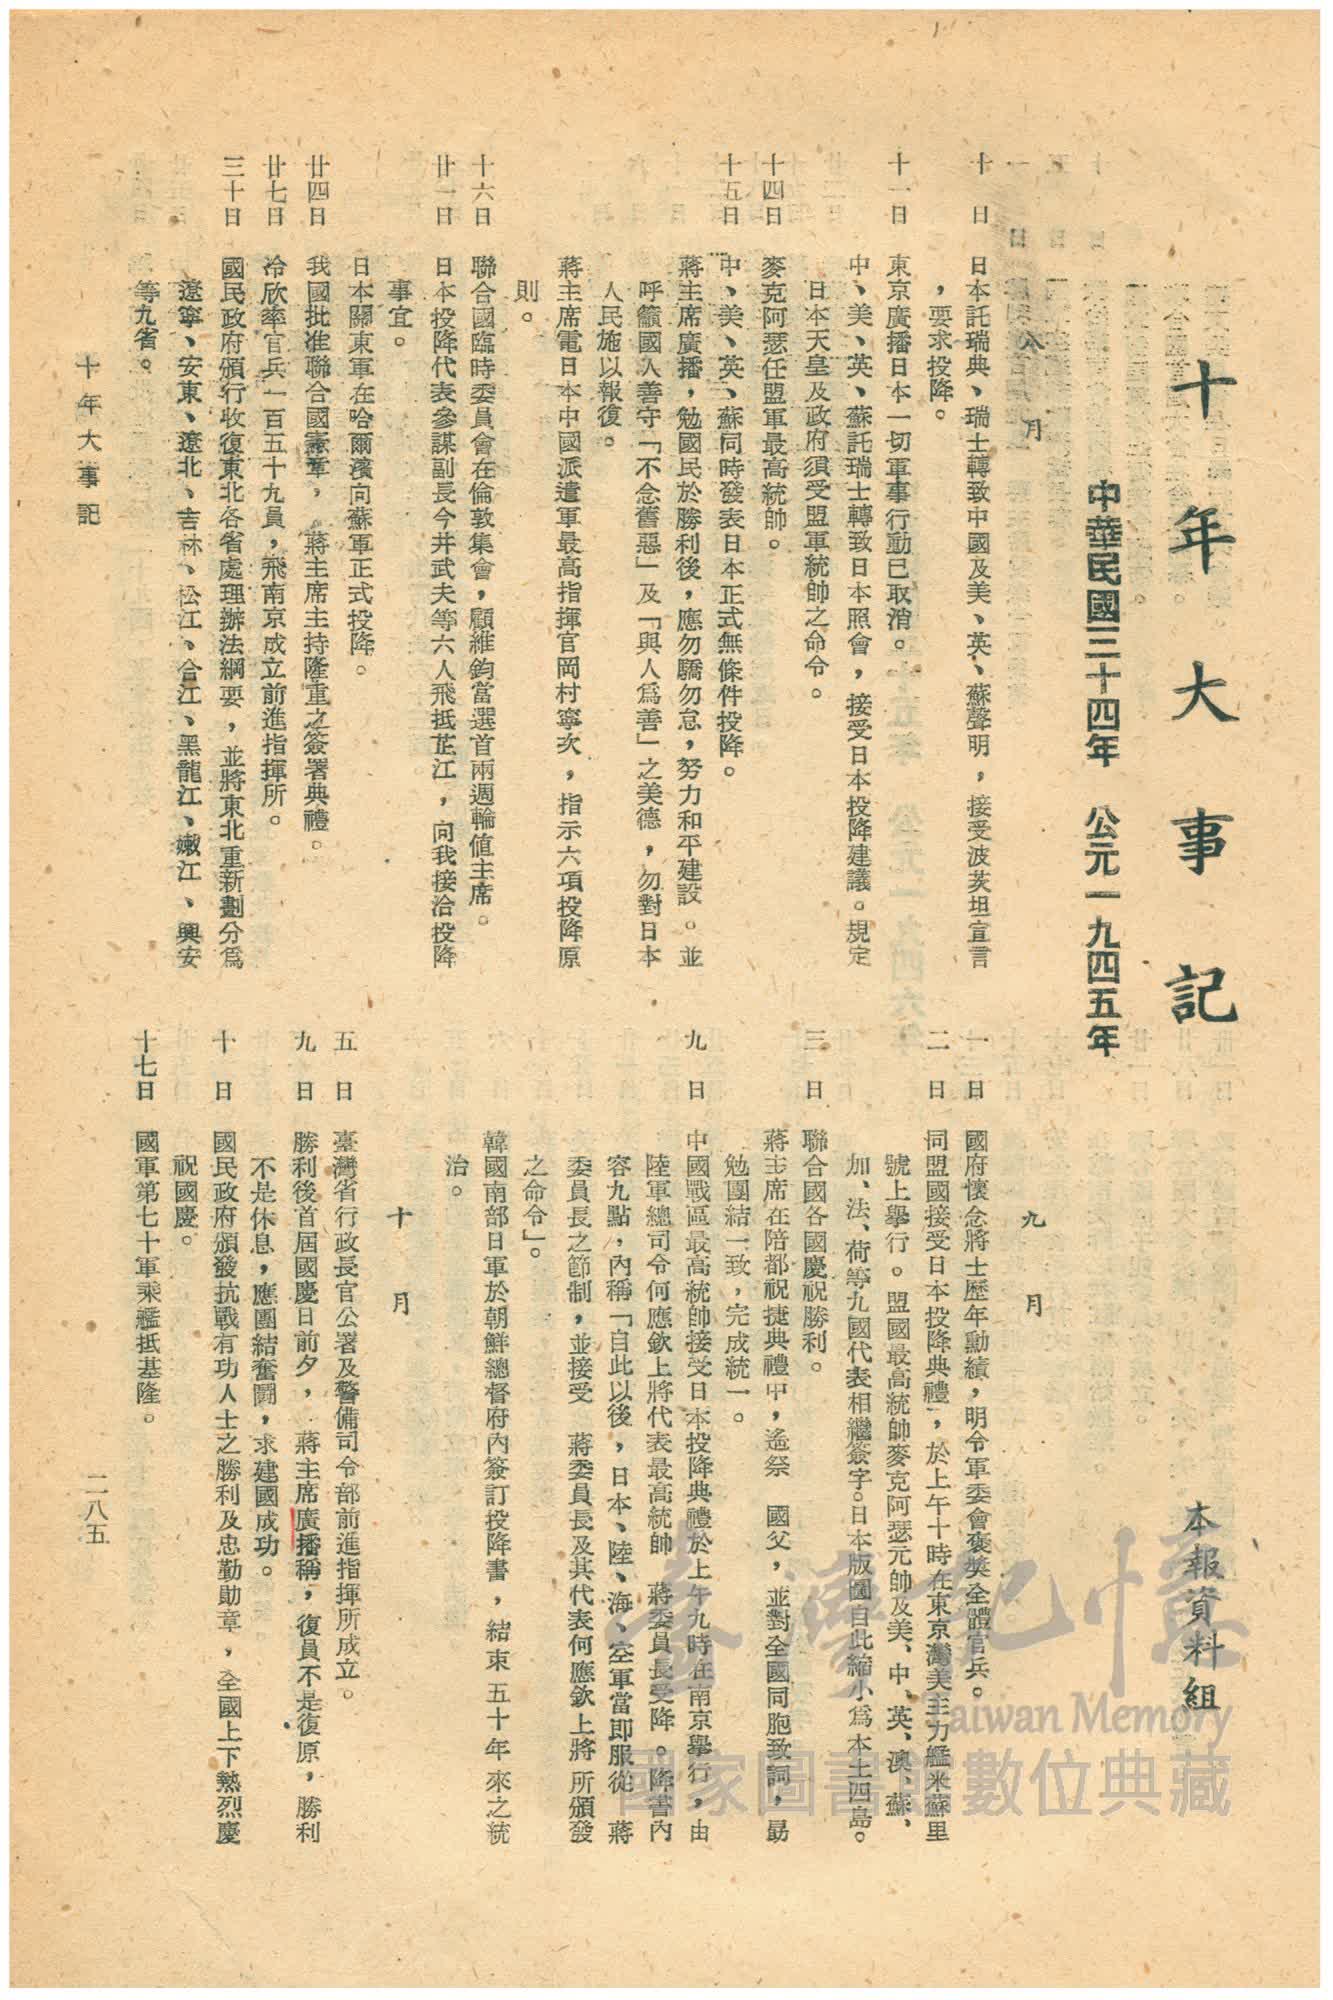 十年大事記
本報資料組
中華民國三十四年　公元一九四五年
八月
十日　日本託瑞典、瑞士轉致中國及美、英、蘇聲明，接受波茨坦宣言
，要求投降。
十一日　東京廣播日本一切軍事行動已取消。
中、美、英、蘇託瑞士轉致日本照會，接受日本投降建議。規定
日本天皇及政府須受盟軍統帥之命令。
十四日　麥克阿瑟任盟軍最高統帥。
十五日　中、美、英、蘇同時發表日本正式無條件投降。
蔣主席廣播，勉國民於勝利後，應勿驕勿怠，努力和平建設。並
呼籲國人善守「不念舊惡」及「與人為善」之美德，勿對日本
人民施以報復。
蔣主席電日本中國派遣軍最高指揮官岡村寧次，指示六項投降原
則。
十六日　聯合國臨時委員會在倫敦集會，顧維鈞當選首兩週輪值主席。
廿一日　日本投降代表參謀副長今井武夫等六人飛抵芷江，向我接洽投降
事宜。
日本關東軍在哈爾濱向蘇軍正式投降。
廿四日　我國批准聯合國憲章，　蔣主席主持隆重之簽署典禮。
廿七日　冷欣率官兵一百五十九員，飛南京成立前進指揮所。
三十日　國民政府頒行收復東北各省處理辦法綱要，並將東北重新劃分為
遼寧、安東、遼北、吉林、松江、合江、黑龍江、嫩江、興安
等九省。
九月
一日　國府懷念將士歷年勳績，明令軍委會褒獎全體官兵。
二日　同盟國接受日本投降典禮，於上午十時在東京灣美主力艦米蘇里
號上舉行。盟國最高統帥麥克阿瑟元帥及美、中、英、澳、蘇、
加、法、荷等九國代表相繼簽字。日本版圖自此縮小為本土四島。
三日　聯合國各國慶祝勝利。
蔣主席在陪都祝捷典禮中，遙祭　國父，並對全國同胞致詞，勗
勉團結一致，完成統一。
九日　中國戰區最高統帥接受日本投降典禮於上午九時在南京舉行，由
陸軍總司令何應欽上將代表最高統帥　蔣委員長受降。降書內
容九點，內稱「自此以後，日本、陸、海、空軍當即服從　蔣
委員長之節制，並接受　蔣委員長及其代表何應欽上將所頒發
之命令」。
韓國南部日軍於朝鮮總督府內簽訂投降書，結束五十年來之統
治。
十月
五日　臺灣省行政長官公署及警備司令部前進指揮所成立。
九日　勝利後首屆國慶日前夕，　蔣主席廣播稱，復員不是復原，勝利
不是休息，應團結奮鬪，求建國成功。
十日　國民政府頒發抗戰有功人士之勝利及忠勤勛章，全國上下熱烈慶
祝國慶。
十七日　國軍第七十軍乘艦抵基隆。
十年大事記
二八五
臺灣記憶
Taiwan Memory
國家圖書館數位典藏